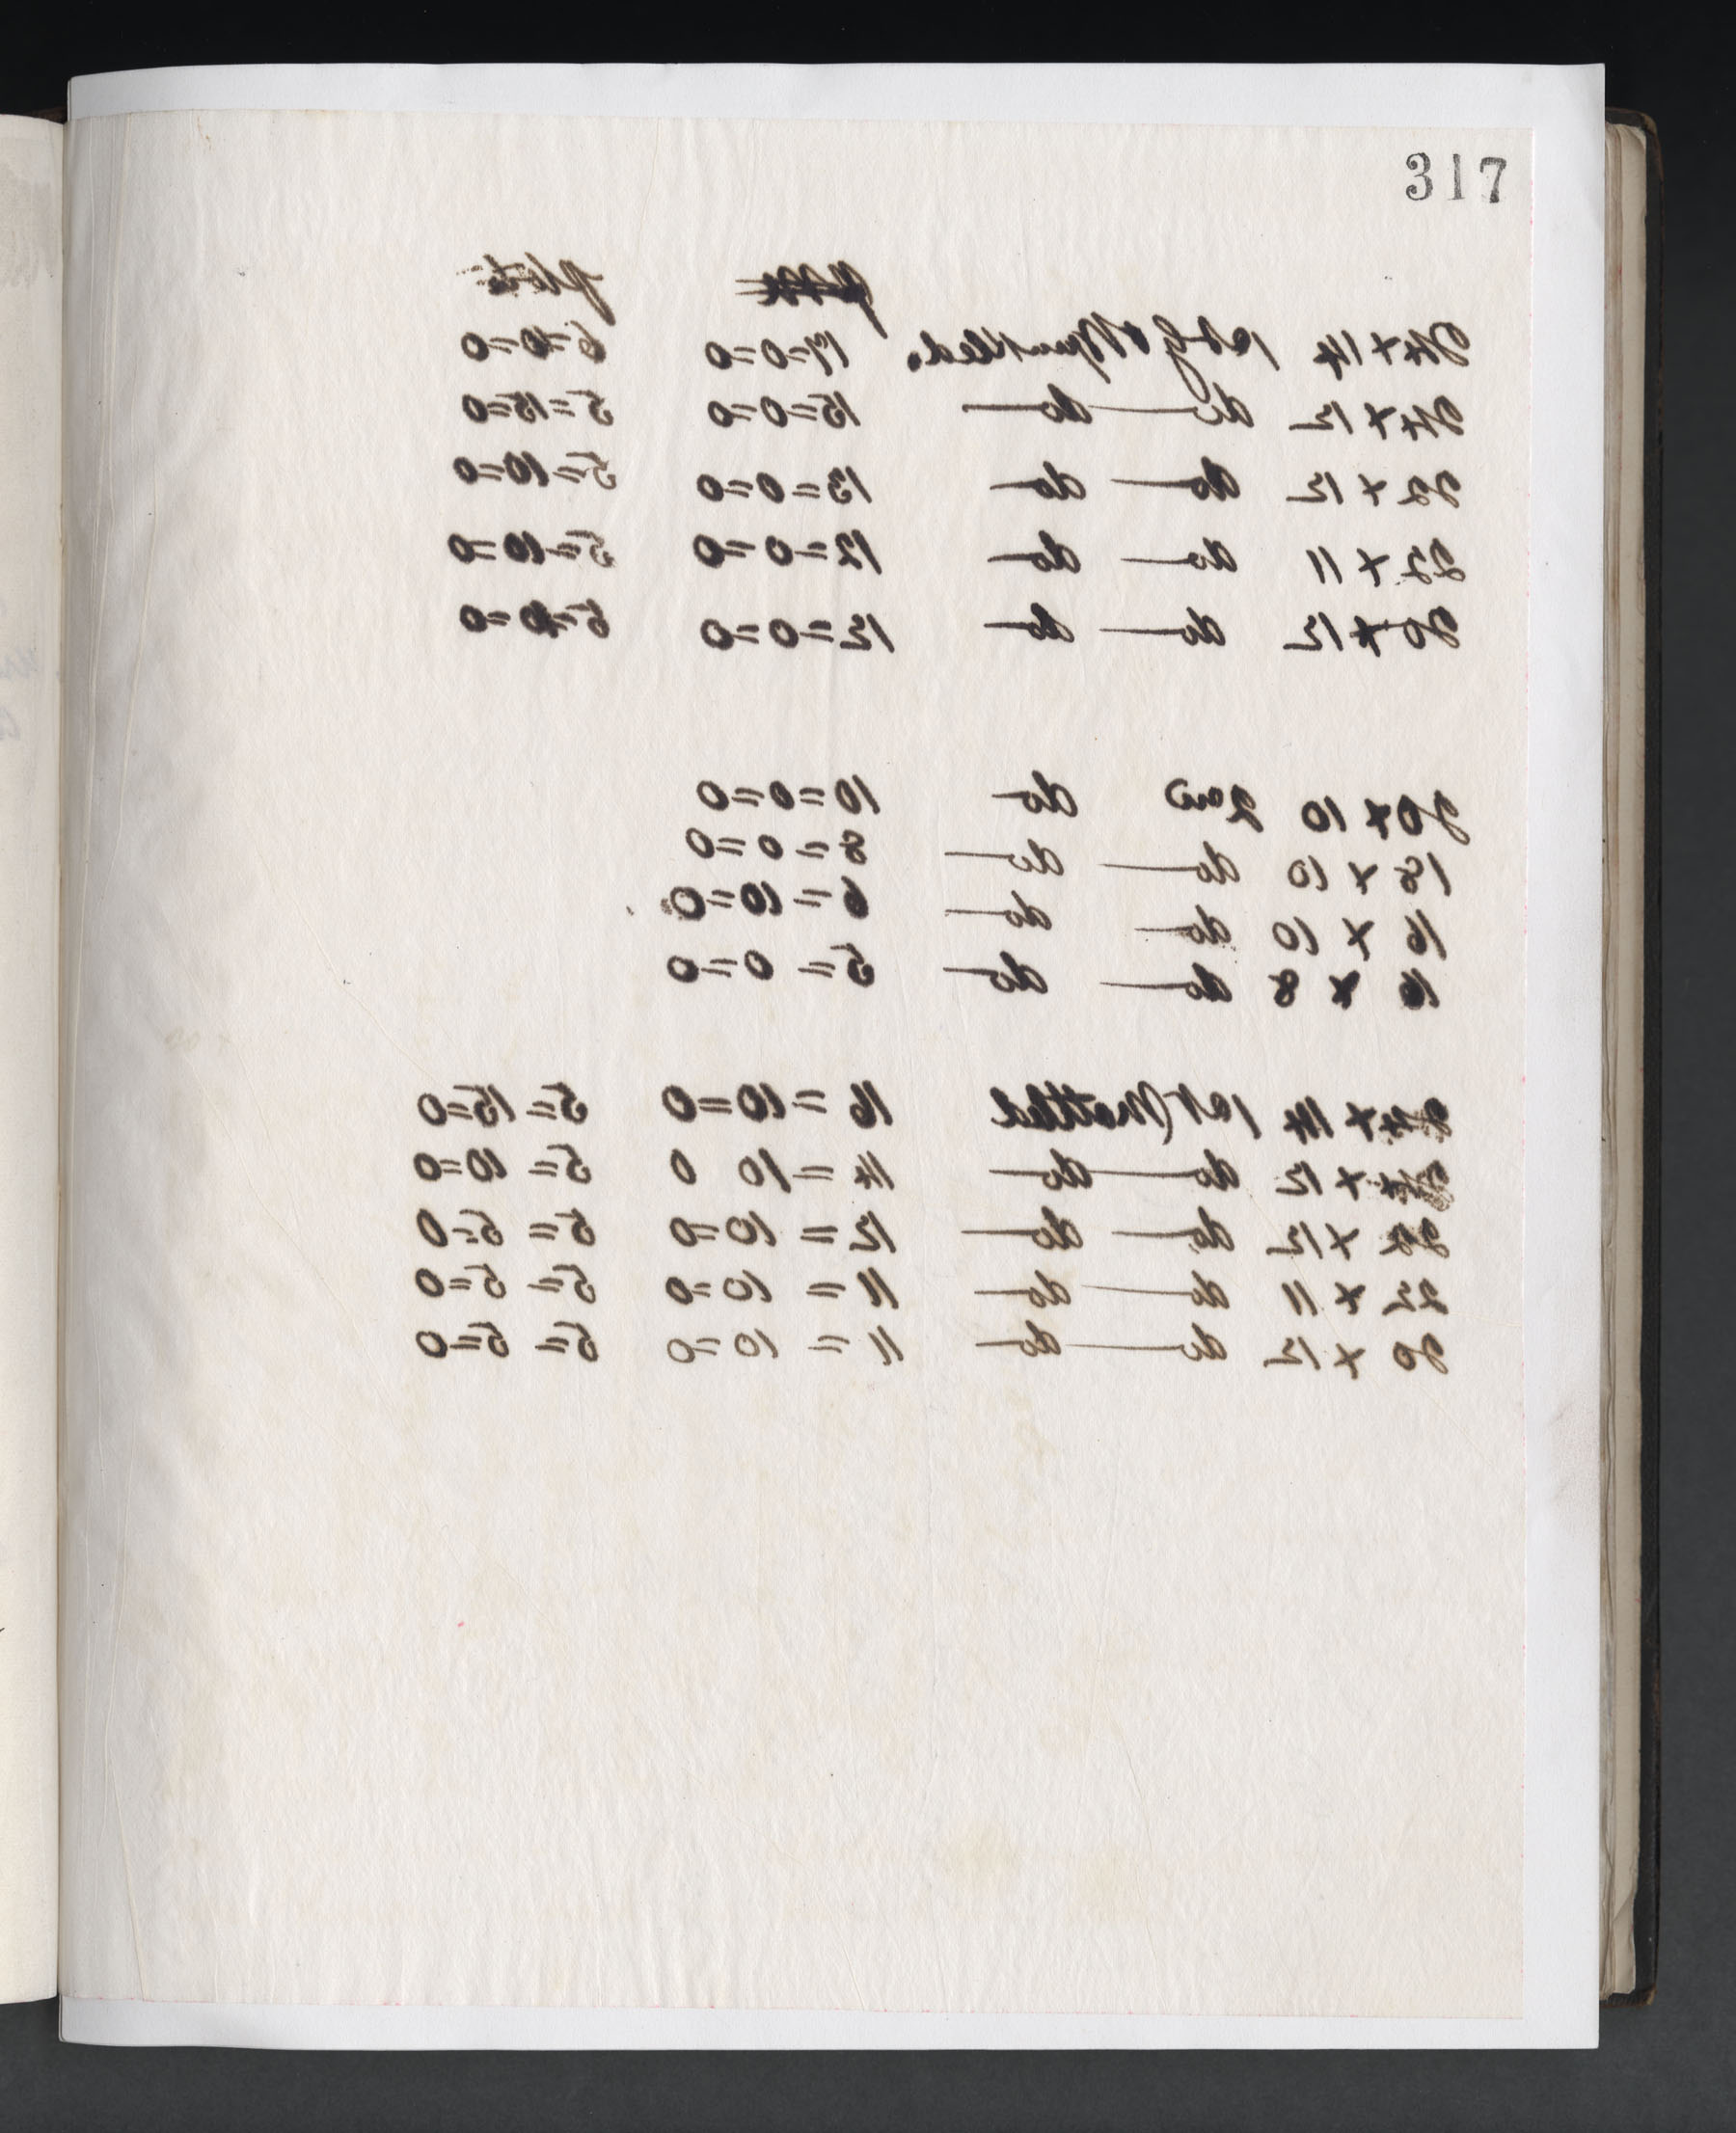 317
24 x 14 1st 17=0=0 6=0=0
24 x 12 do do 15=0=0 5=15=0
22 x 12 do do 13=0=0 5=10=0
22 x 11 do do 12=0=0 5=10=0
20 x 12 do do 12=0=0 5=10=0
20 x 10 2nd do 10=0=0
18 x 10 do do 8=0=0
16 x 10 do do 6=10=0
16 x 8 do do 5=0=0
24 x 14 1st Mottled 16=10=0 5=15=0
24 x 12 do do 14=10 0 5=10=0
22 x 12 do do 12=10=0 5=5=0
22 x 11 do do 11=10=0 5=5=0
20 x 12 do do 11=10=0 5=5=0